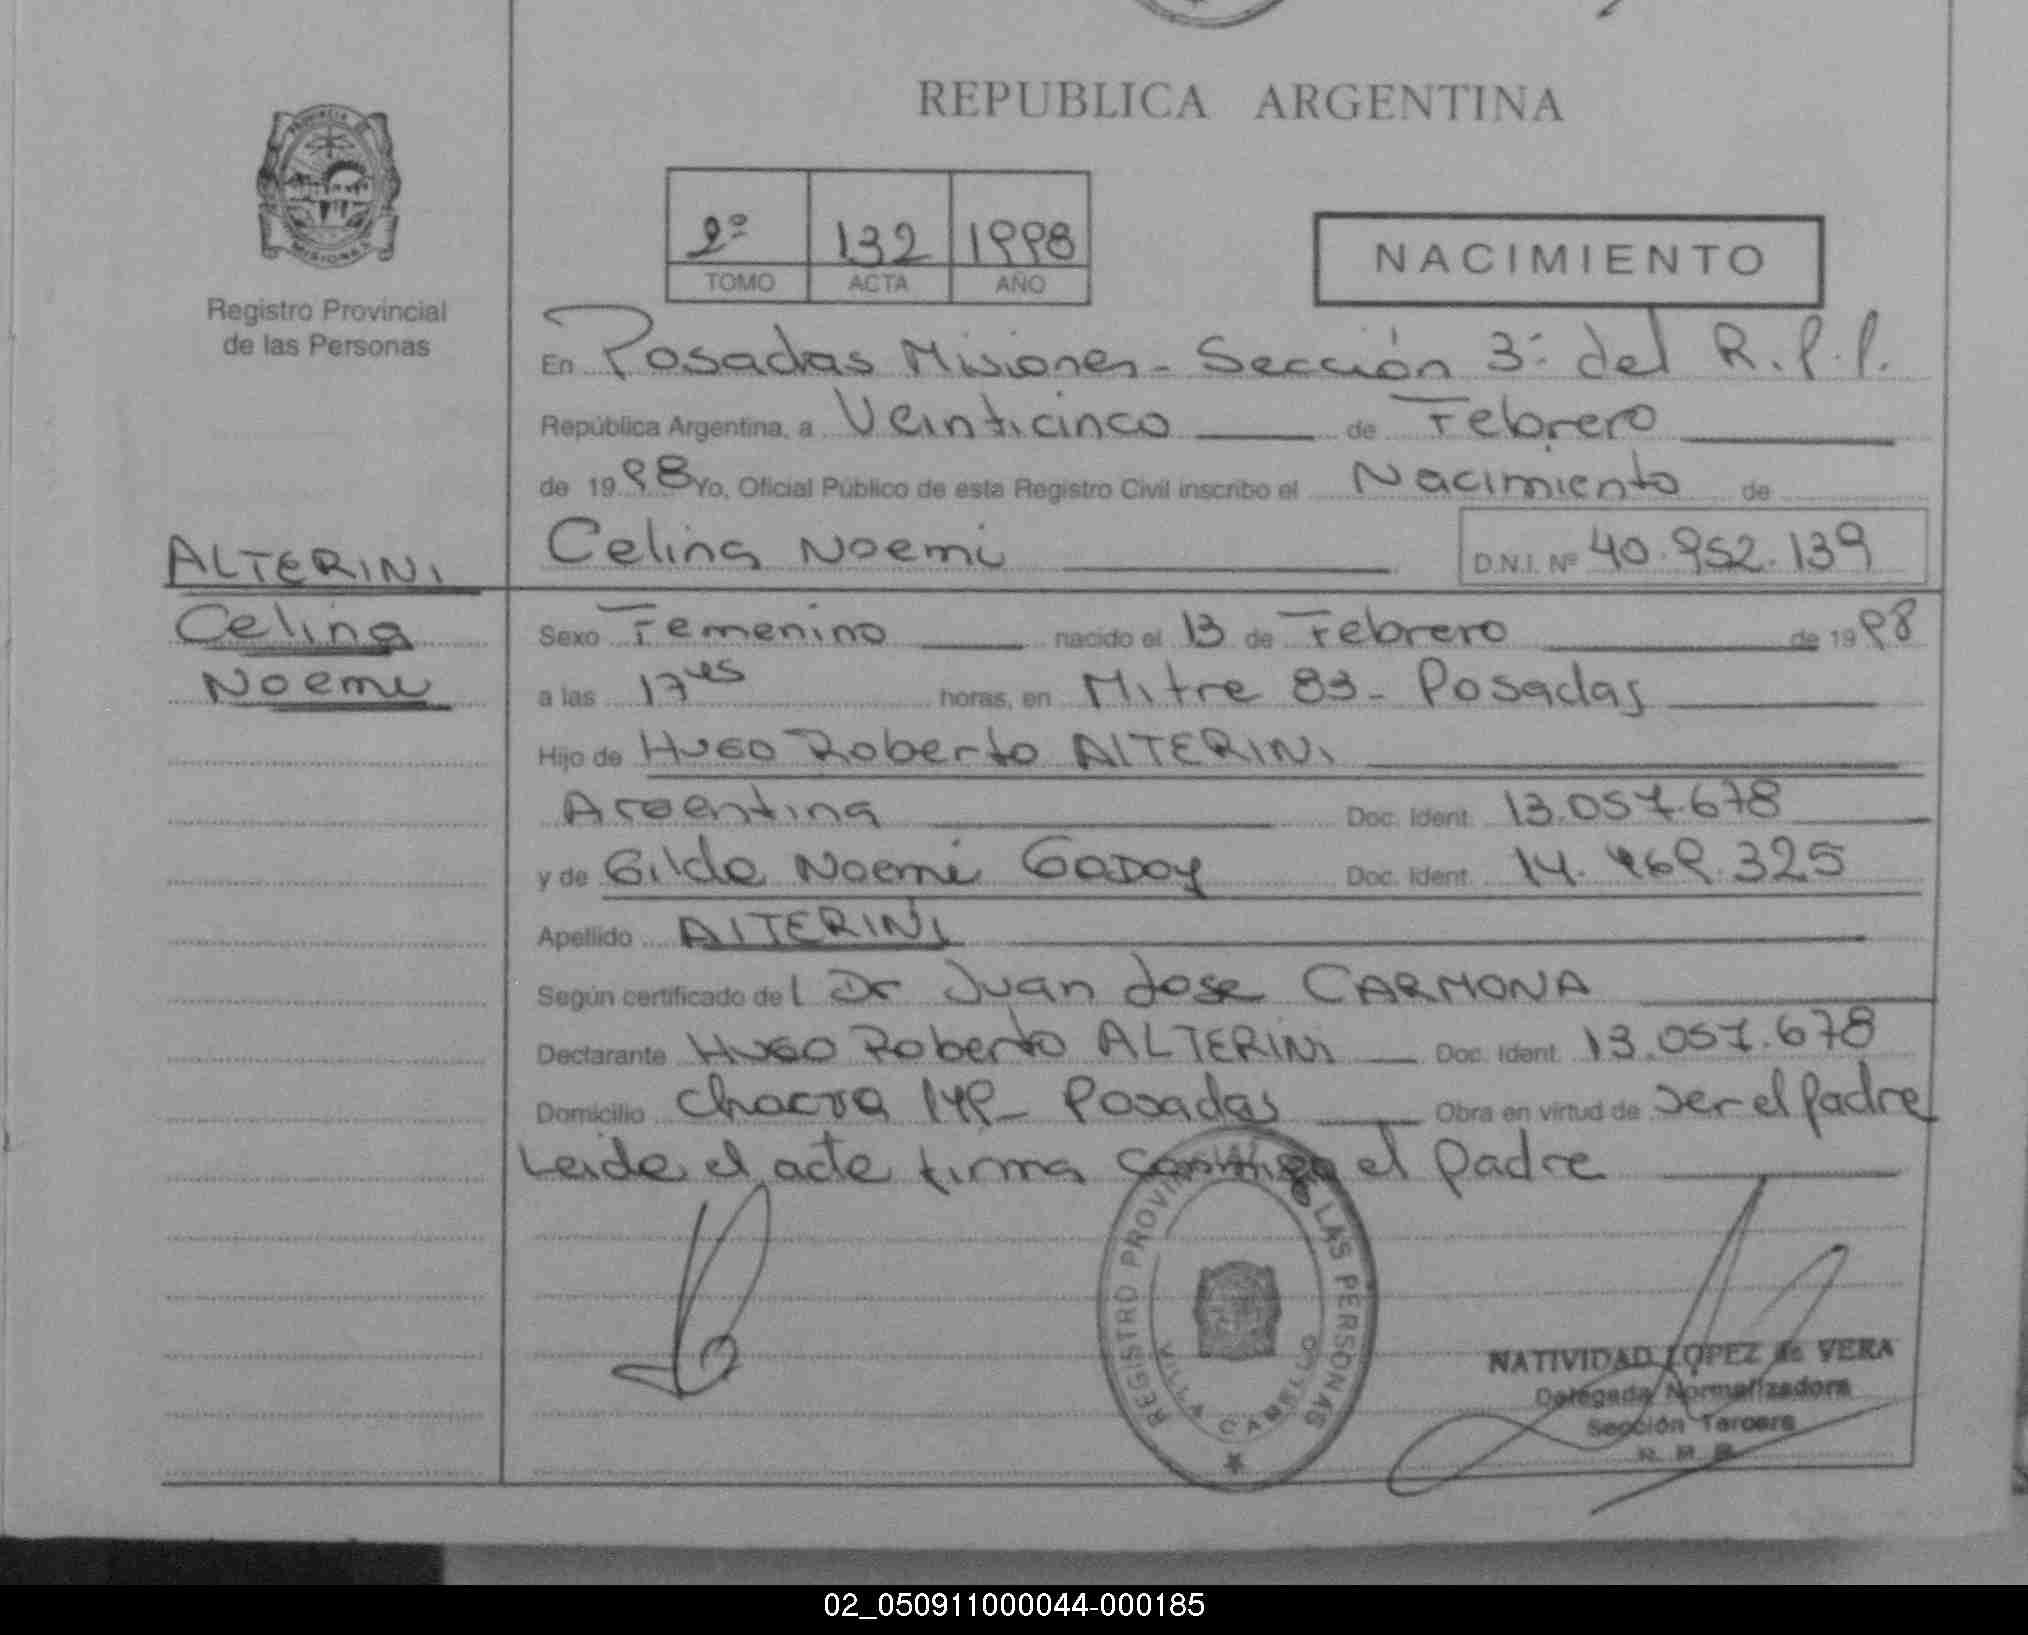 REPUBLICA ARGENTINA
PROVINCIA DE MISIONES
Registro Provincial
de las Personas
2º 132 1998
TOMO ACTA AÑO
NACIMIENTO
En Posadas Misiones - Sección 3ª del R.P.P.
República Argentina, a Veinticinco de Febrero
de 1998 Yo, Oficial Público de esta Registro Civil inscribo el Nacimiento de
Celina Noemi D.N.I. Nº 40.952.139
ALTERINI
Celina
Noemi
Sexo Femenino nacido el 13 de Febrero de 1998
a las 17 horas, en Mitre 83 - Posadas
Hijo de Hugo Roberto ALTERINI
Argentina Doc. Ident. 13.057.678
y de Gilda Noemi GODOY Doc. Ident. 14.469.325
Apellido ALTERINI
Según certificado del Dr Juan Jose CARMONA
Declarante Hugo Roberto ALTERINI Doc. Ident. 13.057.678
Domicilio Chacra 149 - Posadas Obra en virtud de ser el padre
Leida el acta firma conmigo el padre
REGISTRO PROVINCIAL DE LAS PERSONAS
VILLA CABELLO
NATIVIDAD LOPEZ de VERA
Delegada Normalizadora
Sección Tercera
R. P. P.
02_050911000044-000185